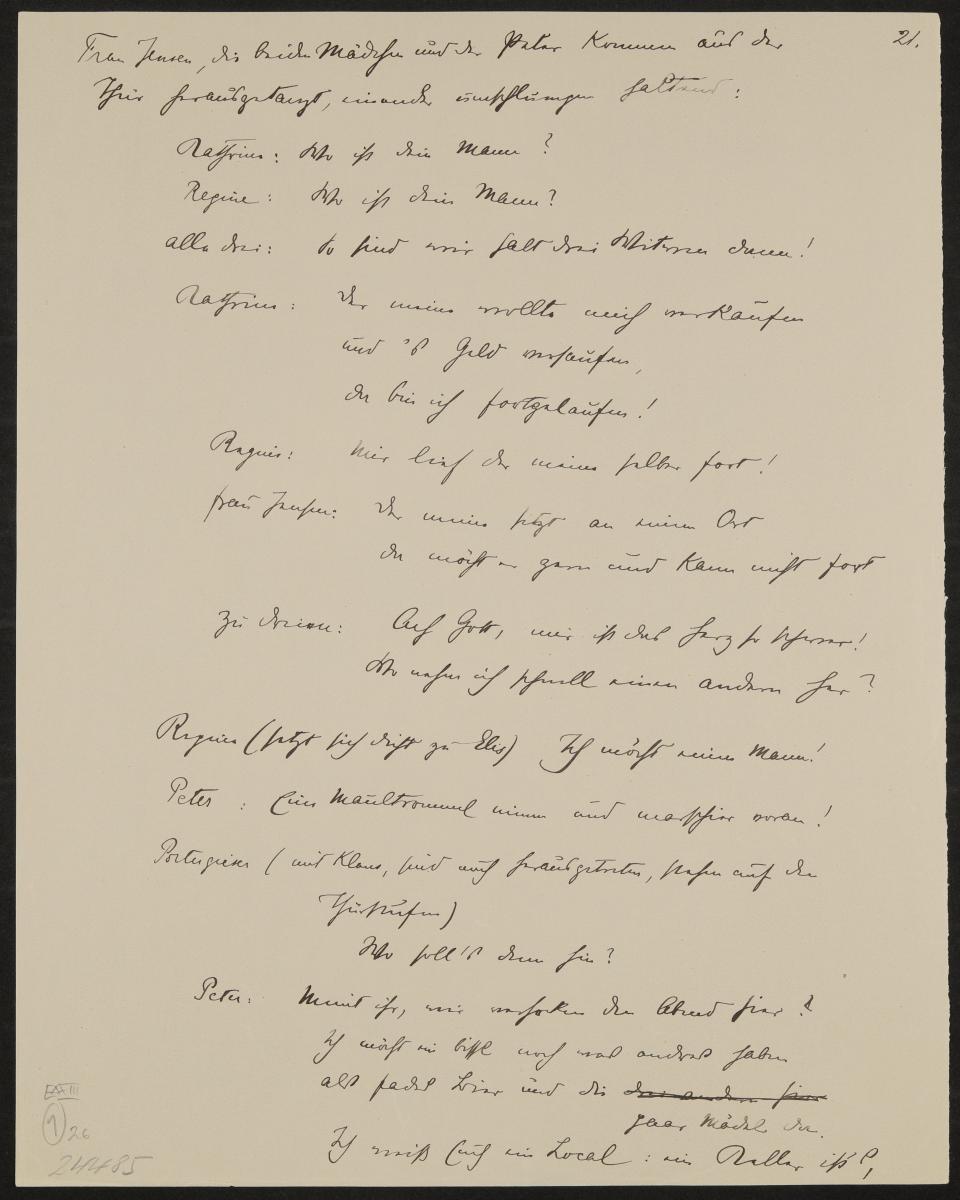 21.
Frau Jensen, die beiden Mädchen und der Peter kommen aus der
Thür herausgetanzt, einander umschlungen haltend:
Kathrine: Wo ist dein Mann?
Regine: Wo ist dein Mann?
alle drei: So sind wir halt drei Witwen dann!
Kathrine: Der meine wollte mich verkaufen
und 's Geld versaufen,
da bin ich fortgelaufen!
Regine: Mir lief der meine selber fort!
Frau Jensen: Der meine sitzt an einem Ort
da möcht er gern und kann nicht fort
zu dreien: Ach Gott, mir ist das Herz so schwer!
Wo nehm ich schnell einen andern her?
Regine (setzt sich dicht zu Elis) Ich möcht einen Mann!
Peter: Eine Maultrommel nimm und marschier voran!
Portugiese (mit Klaus, sind auch herausgetreten, stehen auf den
Thürstufen)
Wo soll's denn hin?
Peter: Meint ihr, wir verhocken den Abend hier?
Ich möcht ein bissl noch was anders haben
als fades Bier und die das andern hier
paar Mädel da.
Ich weiß Euch ein Local: ein Keller ist's,
AA III
1
26
24485